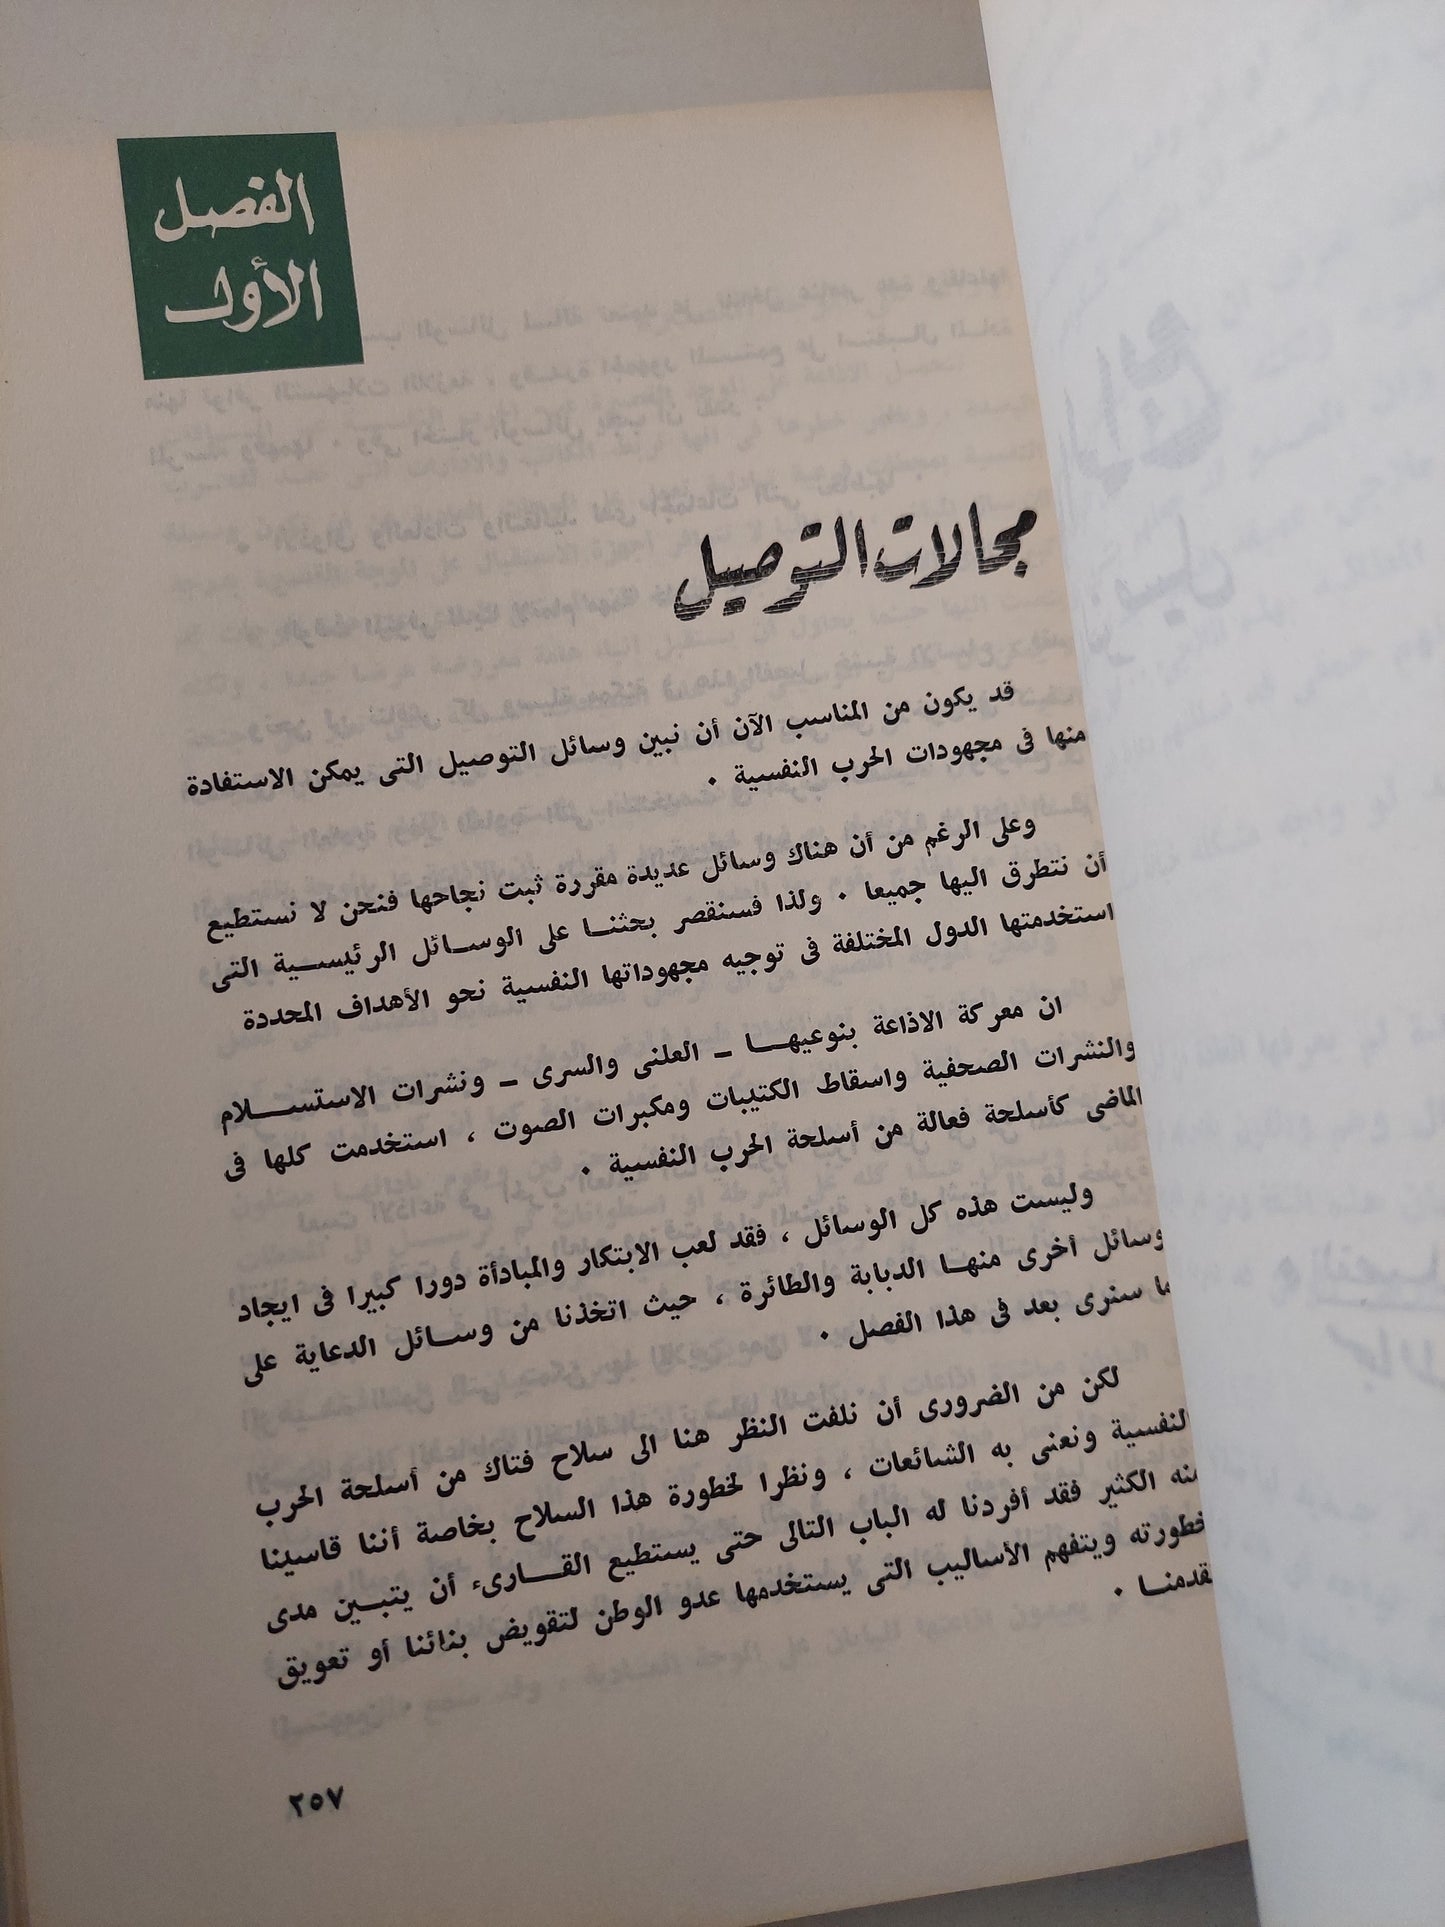 الفصل
الأول
مجالات التوصيل
قد يكون من المناسب الآن أن نبين وسائل التوصيل التى يمكن الاستفادة
منها فى مجهودات الحرب النفسية ٠
وعلى الرغم من أن هناك وسائل عديدة مقررة ثبت نجاحها فنحن لا نستطيع
أن نتطرق اليها جميعا ٠ ولذا فسنقصر بحثنا على الوسائل الرئيسية التى
استخدمتها الدول المختلفة فى توجيه مجهوداتها النفسية نحو الأهداف المحددة
ان معركة الاذاعة بنوعيها – العلنى والسرى – ونشرات الاستسلام
والنشرات الصحفية واسقاط الكتيبات ومكبرات الصوت ، استخدمت كلها فى
الماضى كأسلحة فعالة من أسلحة الحرب النفسية ٠
وليست هذه كل الوسائل ، فقد لعب الابتكار والمبادأة دورا كبيرا فى ايجاد
وسائل أخرى منها الدبابة والطائرة ، حيث اتخذنا من وسائل الدعاية على
ما سنرى بعد فى هذا الفصل ٠
لكن من الضرورى أن نلفت النظر هنا الى سلاح فتاك من أسلحة الحرب
النفسية ونعنى به الشائعات ، ونظرا لخطورة هذا السلاح بخاصة أننا قاسينا
منه الكثير فقد أفردنا له الباب التالى حتى يستطيع القارىء أن يتبين مدى
خطورته ويتفهم الأساليب التى يستخدمها عدو الوطن لتقويض بنائنا أو تعويق
تقدمنا ٠
٢٥٧